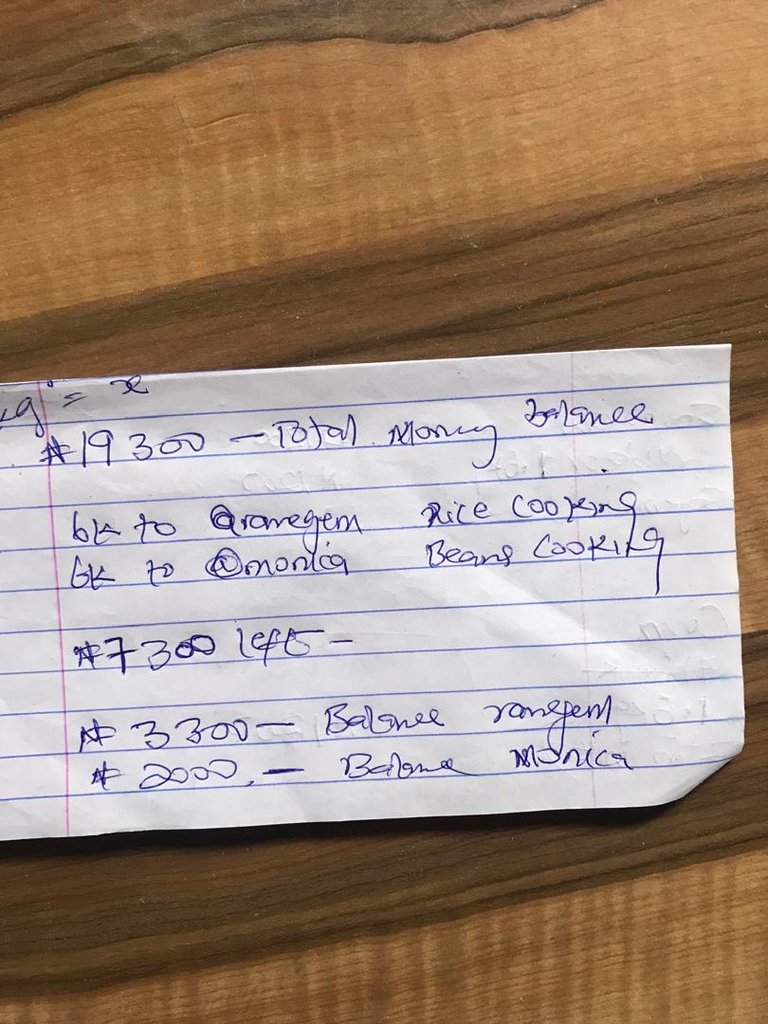 g = x
₦19300 - Total Money balance
6k to @ramegem Rice Cooking
6k to @monica Beans Cooking
₦7300 left -
₦3300 - Balance ramgem
₦2000. - Balance Monica